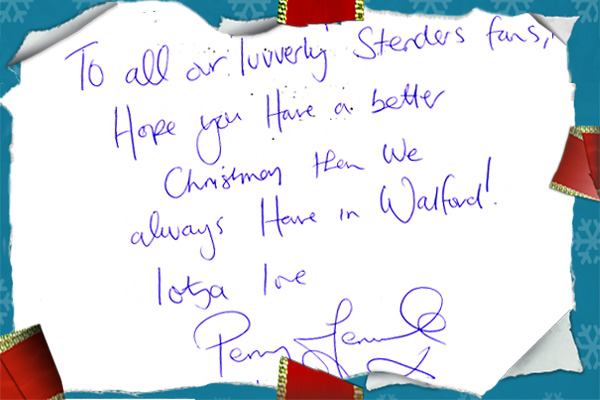 To all our luvverly Stenders fans,
Hope you Have a better
Christmas then We
always Have in Walford!
lotsa love
Perry Fenwick x